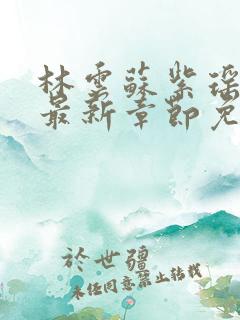 林雲蘇紫瑶
最新章節免
於世疆
未经同意禁止转载